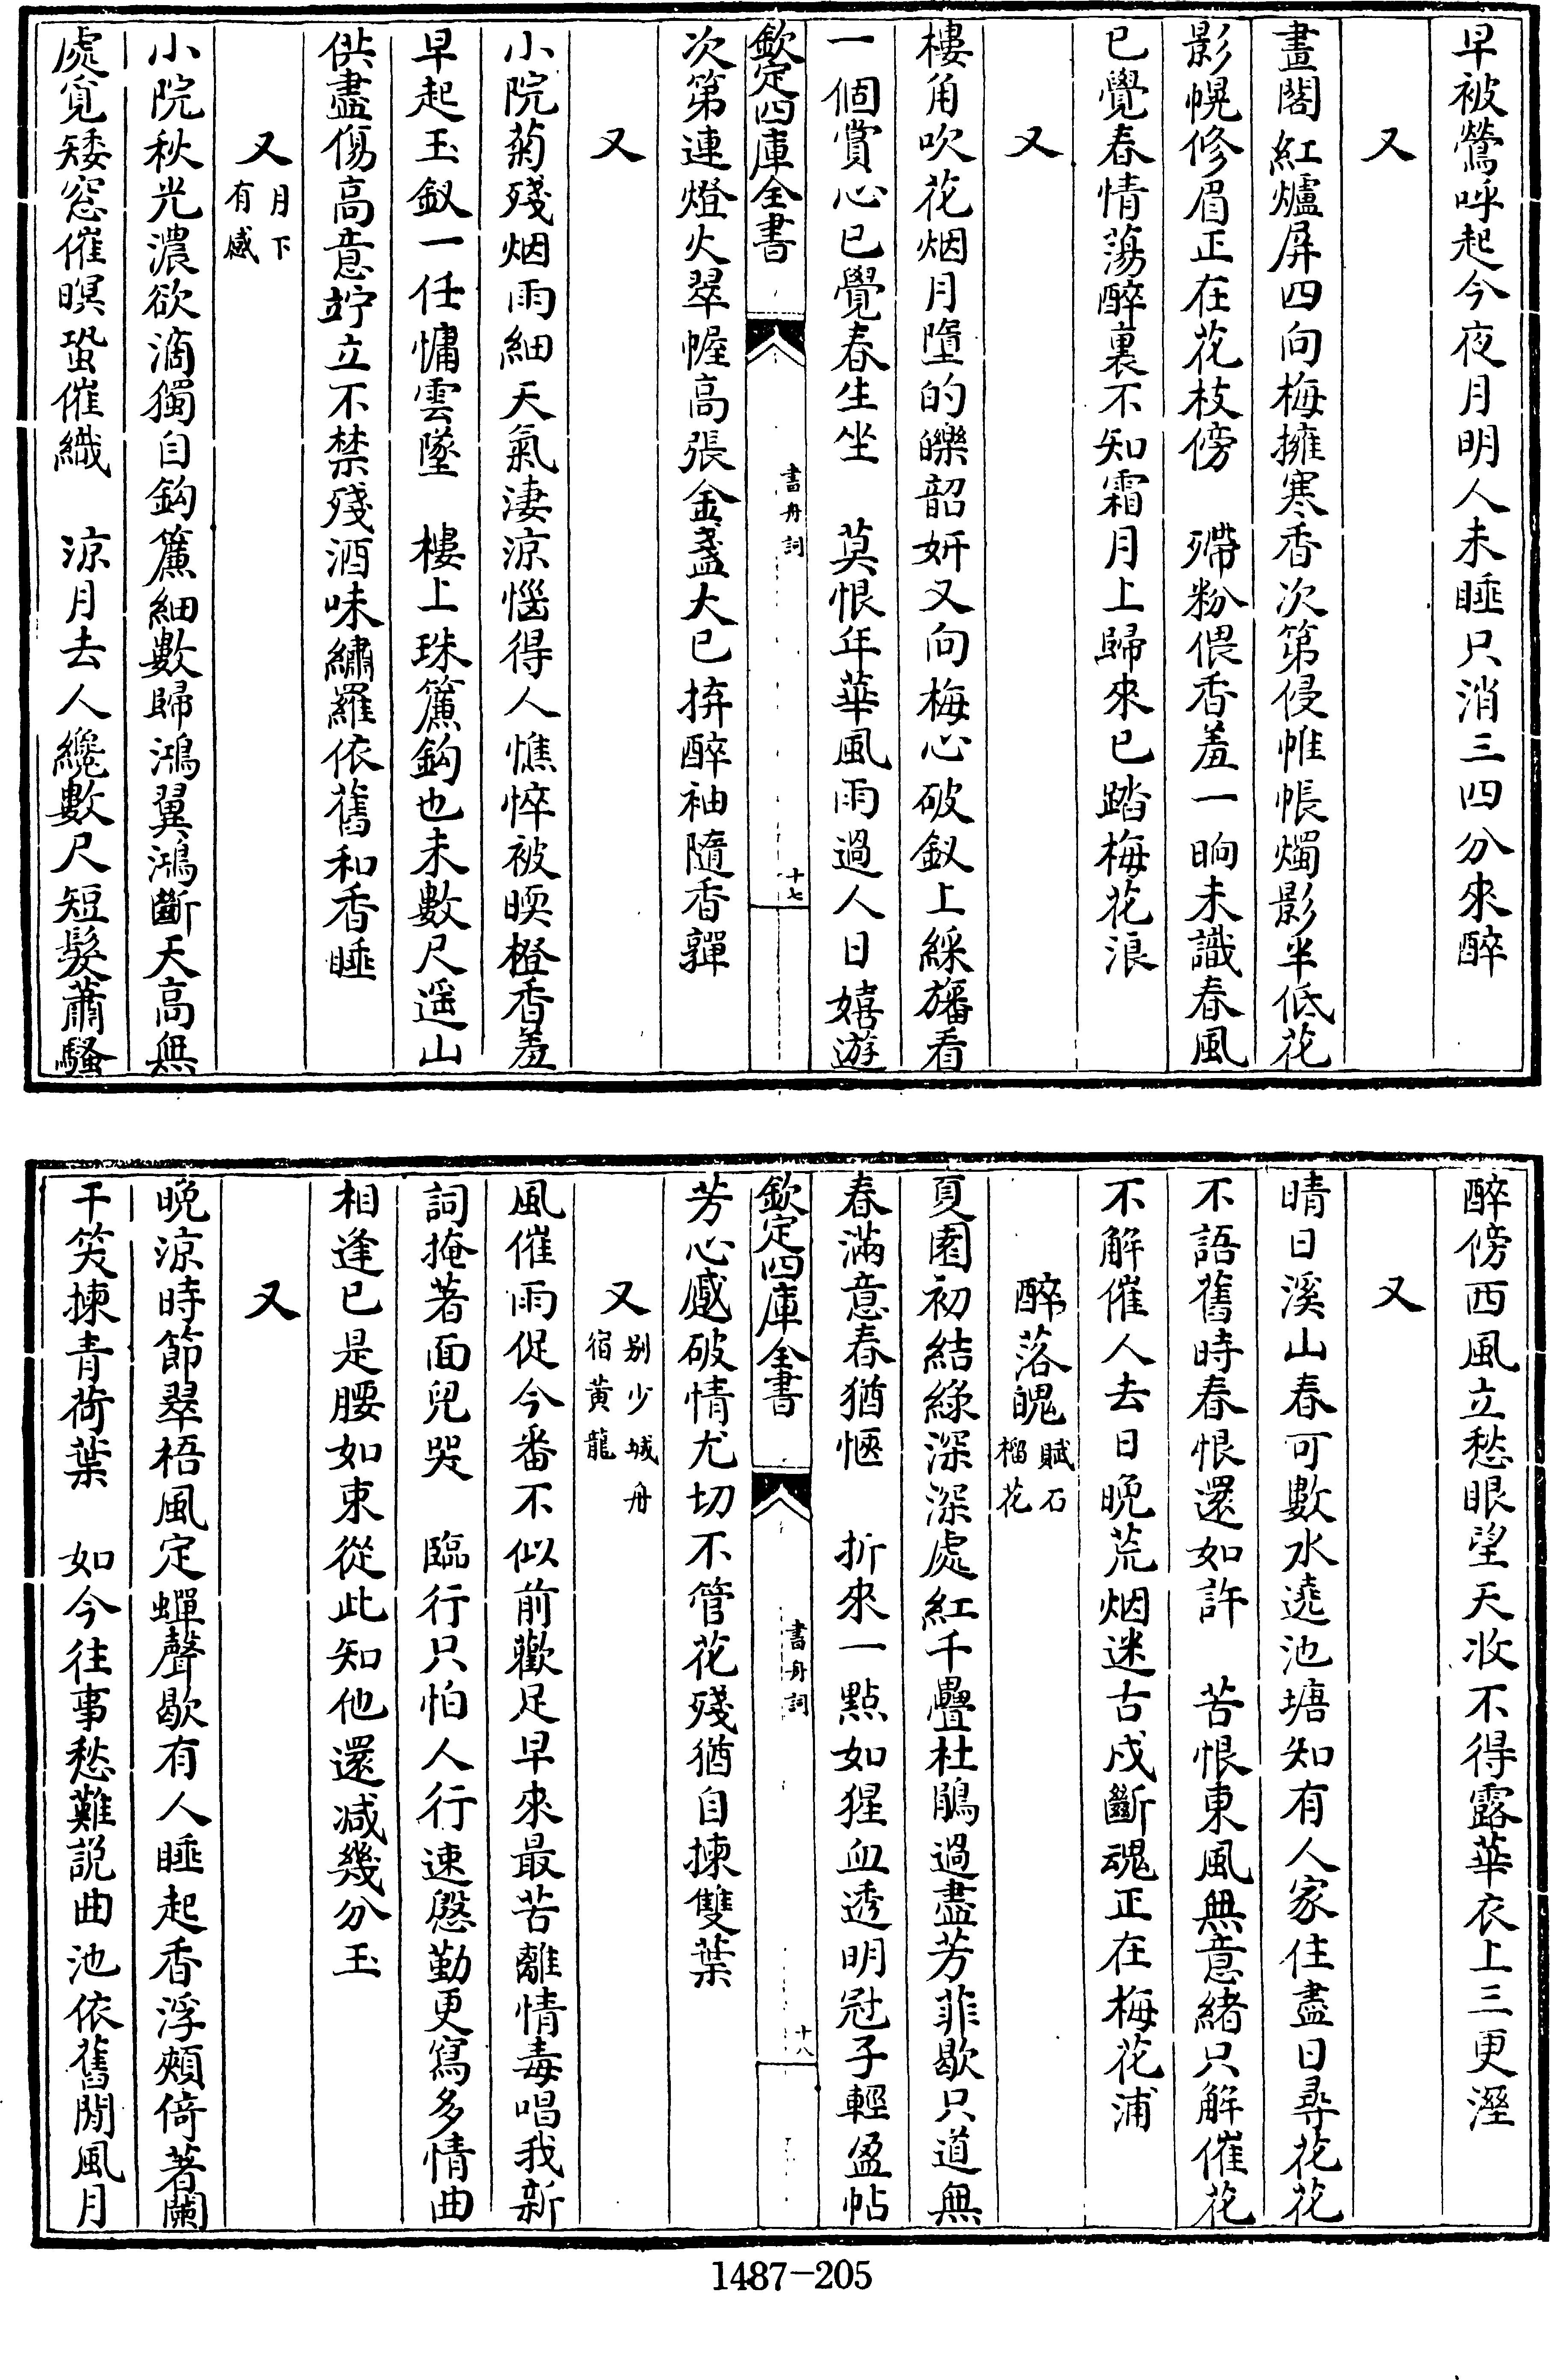 早被鶯呼起今夜月明人未睡只消三四分來醉
又
畫閣紅爐屏四向梅擁寒香次第侵帷帳燭影半低花
影幌修眉正在花枝傍　殢粉偎香羞一晌未識春風
已覺春情蕩醉裏不知霜月上歸來已踏梅花浪
又
樓角吹花烟月墮的皪韶妍又向梅心破釵上綵旛看
一個賞心已覺春生坐　莫恨年華風雨過人日嬉遊
欽定四庫全書
書舟詞
十七
次第連燈火翠幄高張金盞大已拚醉袖隨香嚲
又
小院菊殘烟雨細天氣淒涼惱得人憔悴被暖橙香羞
早起玉釵一任慵雲墜　樓上珠簾鈎也未數尺遥山
供盡傷高意竚立不禁殘酒味繡羅依舊和香睡
又月下有感
小院秋光濃欲滴獨自鈎簾細數歸鴻翼鴻斷天高無
處覓矮窓催暝蛩催織　涼月去人纔數尺短髮蕭騷
醉傍西風立愁眼望天收不得露華衣上三更溼
又
晴日溪山春可數水遶池塘知有人家住盡日尋花花
不語舊時春恨還如許　苦恨東風無意緒只解催花
不解催人去日晚荒烟迷古戍斷魂正在梅花浦
醉落魄賦石榴花
夏園初結綠深深處紅千疊杜鵑過盡芳菲歇只道無
春滿意春猶愜　折來一點如猩血透明冠子輕盈帖
欽定四庫全書
書舟詞
十八
芳心感破情尤切不管花殘猶自揀雙葉
又别少城舟宿黄龍
風催雨促今番不似前歡足早來最苦離情毒唱我新
詞掩著面兒哭　臨行只怕人行速慇勤更寫多情曲
相逢已是腰如束從此知他還減幾分玉
又
晚涼時節翠梧風定蟬聲歇有人睡起香浮頰倚著闌
干笑揀青荷葉　如今往事愁難説曲池依舊閒風月
1487-205